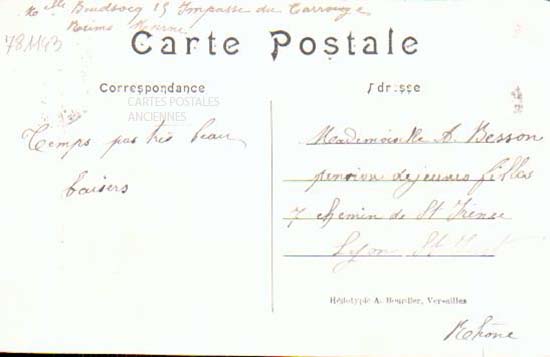 15 Impasse du Carrouge
Reims Marne
781143
Carte Postale
Correspondance
CARTES POSTALES
ANCIENNES
Adresse
Temps pas très beau
baisers
Mademoiselle A. Besson
pension de jeunes filles
7 chemin de St Irénée
Lyon St
Héliotypie A. Bourdier, Versailles
Rhône